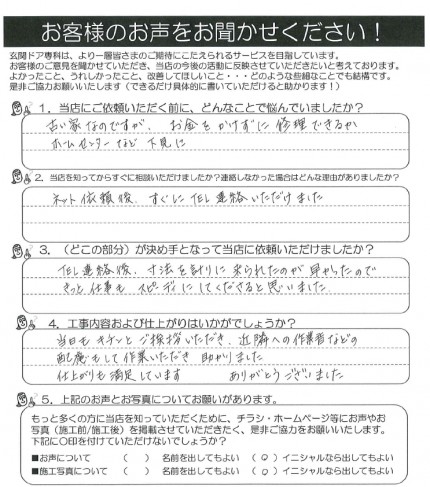 お客様のお声をお聞かせください！
玄関ドア専科は、より一層皆さまのご期待にこたえられるサービスを目指しています。
お客様のご意見を聞かせていただき、当店の今後の活動に反映させていただきたいと考えております。
よかったこと、うれしかったこと、改善してほしいこと・・・どのような些細なことでも結構です。
是非ご協力お願いいたします（できるだけ具体的に書いていただけると助かります！）
1．当店にご依頼いただく前に、どんなことで悩んでいましたか？
古い家なのですが、お金をかけずに修理できるか
ホームセンターなど下見に
2．当店を知ってからすぐに相談いただけましたか？連絡しなかった場合はどんな理由がありましたか？
ネット依頼後、すぐにTEL連絡いただけました
3．（どこの部分）が決め手となって当店に依頼いただけましたか？
TEL連絡後、寸法を計りに来られたのが早かったので
きっと仕事もスピーディにしてくださると思いました
4．工事内容および仕上がりはいかがでしょうか？
当日もキチンとご挨拶いただき、近隣への作業音などの
配慮もして作業いただき助かりました
仕上がりも満足しています ありがとうございました
5．上記のお声とお写真についてお願いがあります。
もっと多くの方に当店を知っていただくために、チラシ・ホームページ等にお声やお
写真（施工前/施工後）を掲載させていただきたく、是非ご協力をお願いいたします。
下記に〇印を付けていただけないでしょうか？
■お声について （ ） 名前を出してもよい （○）イニシャルなら出してもよい
■施工写真について （ ） 名前を出してもよい （○）イニシャルなら出してもよい